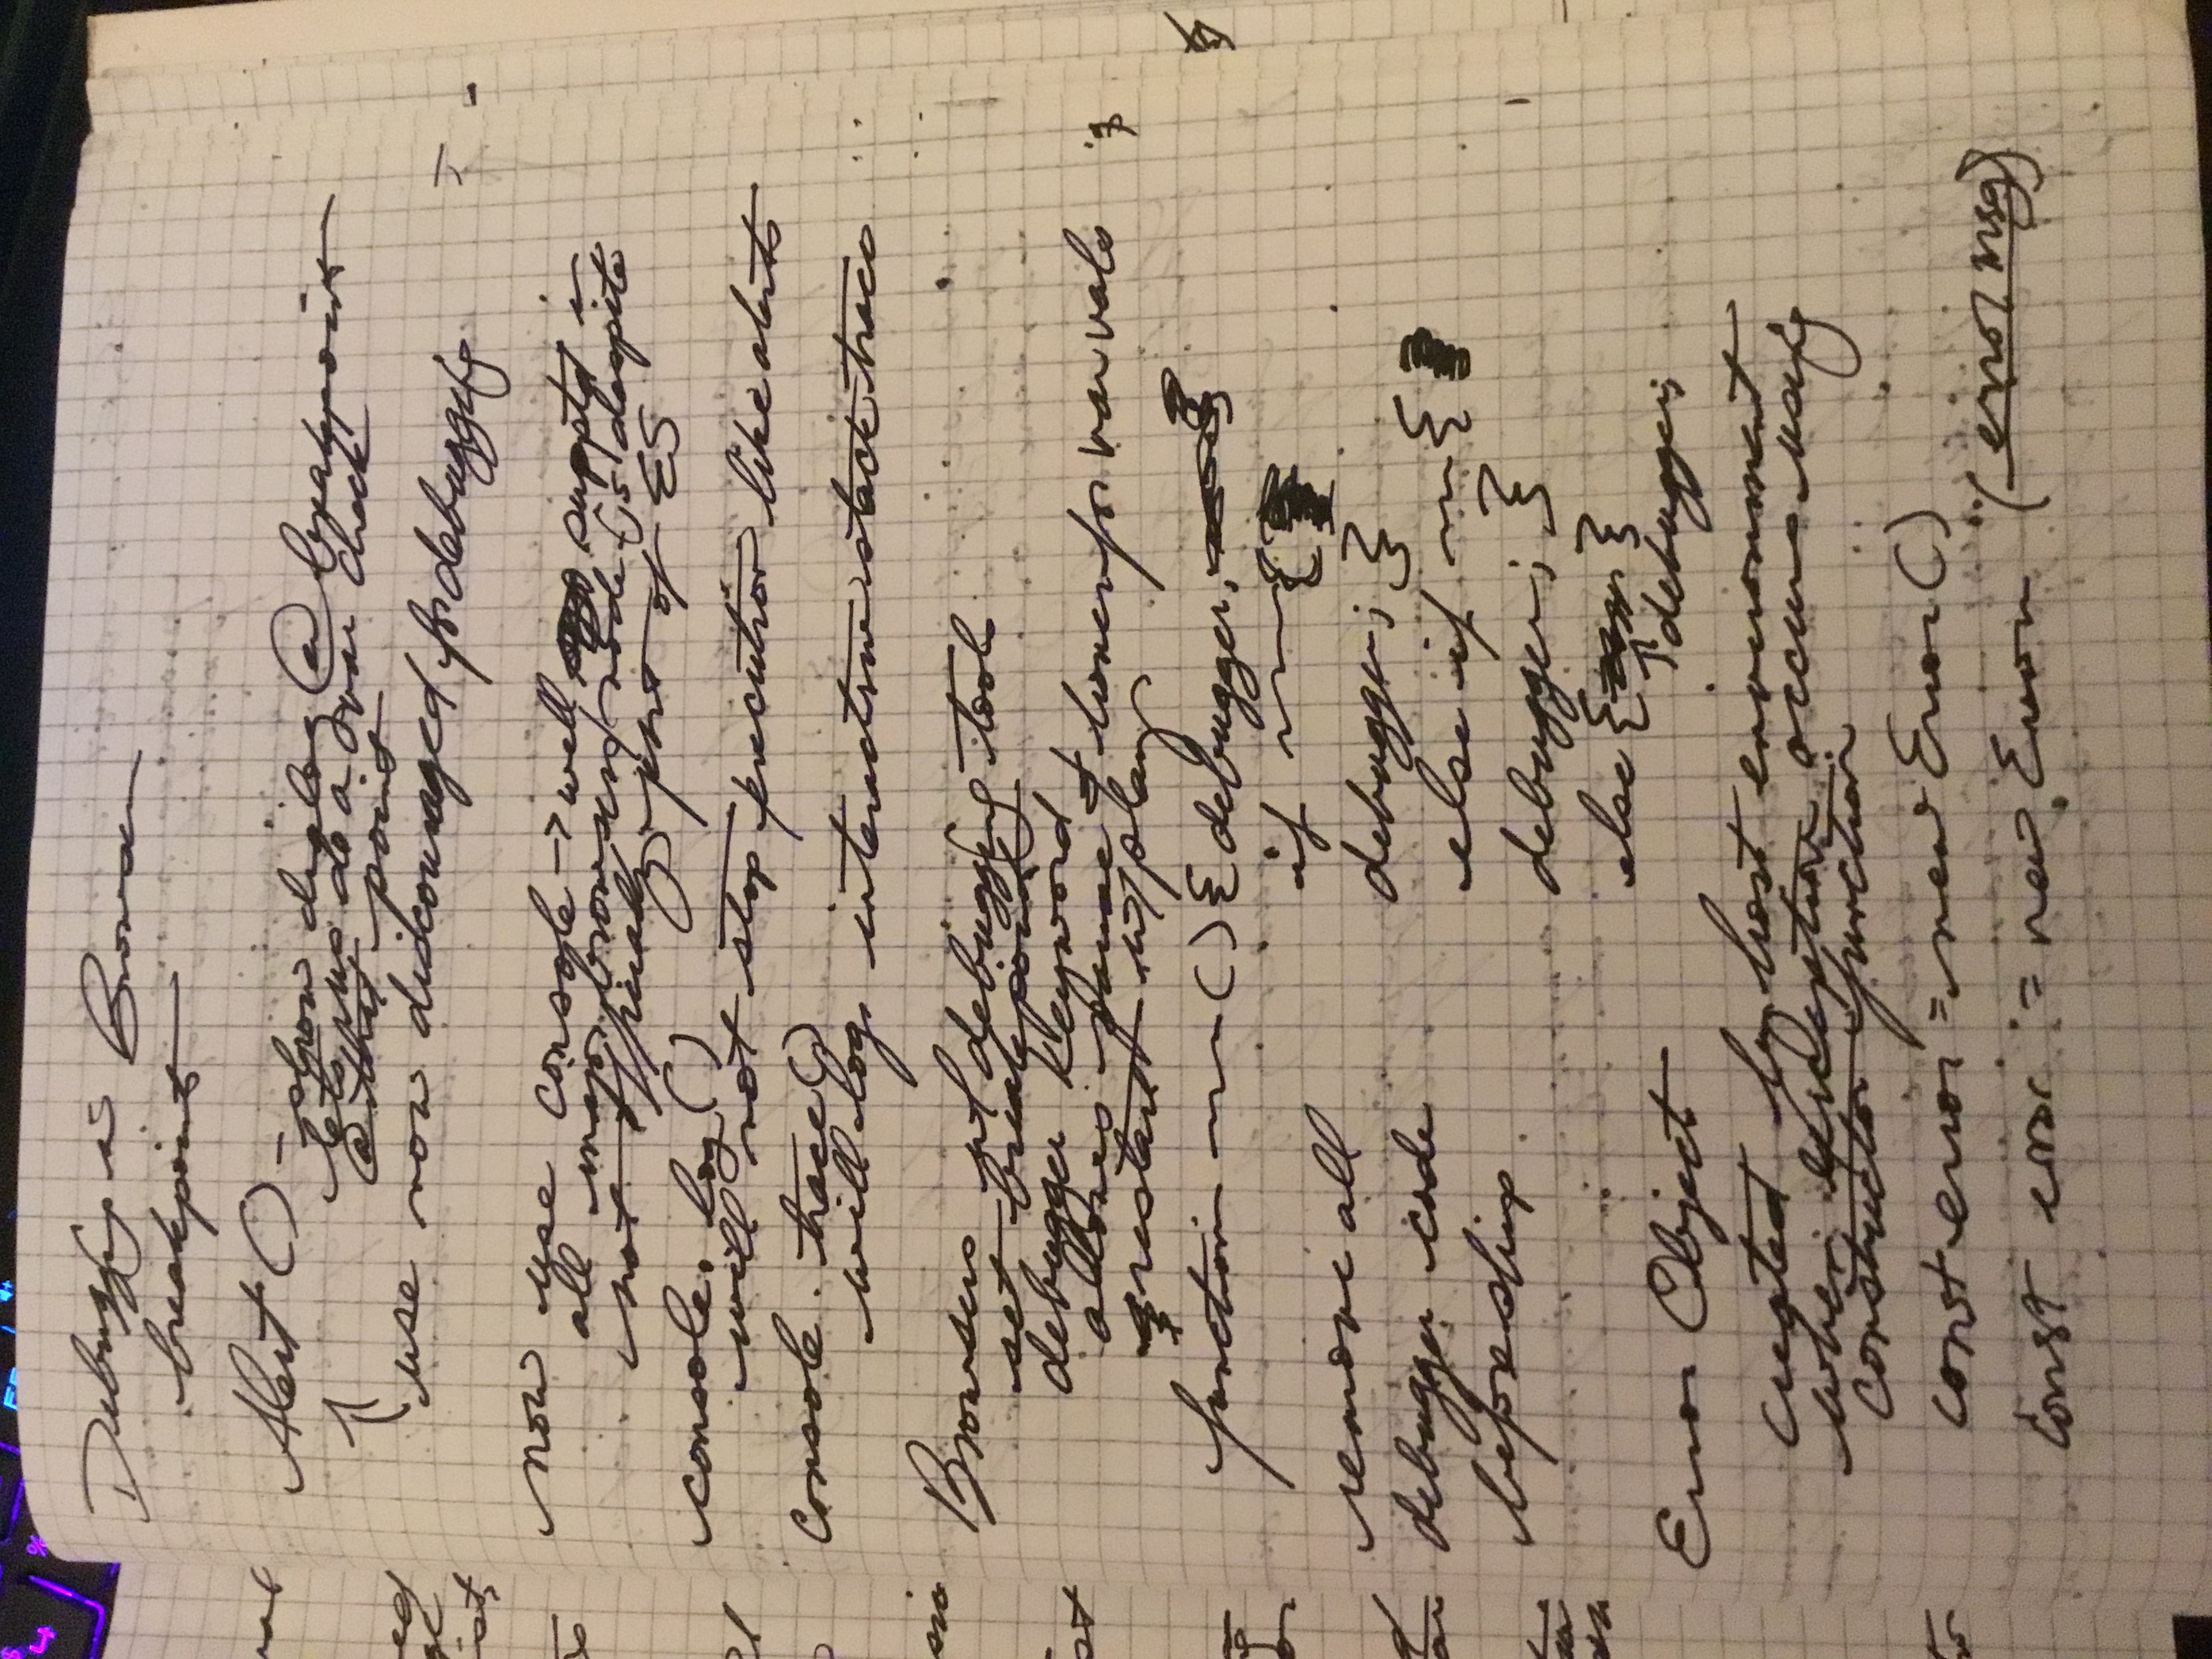 Debugging in Browser
breakpoints
Alert () - show dialog @ breakpoint
lets us do a var check
@ that point
↑ use now discouraged for debugging
now use console -> well supptd in
all major browsers/node.js despite
not officially part of ES
console.log()
will not stop execution like alerts
console.trace()
will log interactive stack trace
Browsers w/ debugging tools
set breakpoint
debugger keyword
allows pause + hover for var vals
restart w/ play
function ~~ () { debugger;
if ~~ {
debugger; }
else if ~~ {
debugger; }
else { }
↑ debugger;
remove all
debugger code
before ship
Error Object
created by host environment
when exception occurs using
constructor function
const error = new Error()
const error = new Error (error msg)